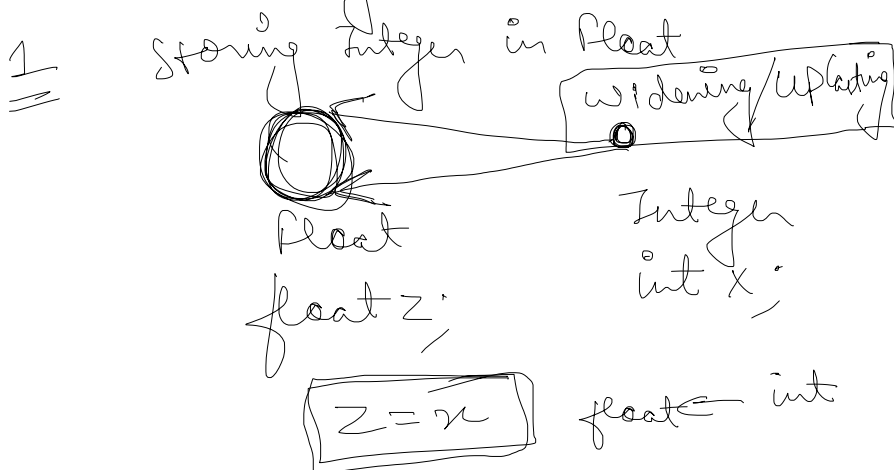 1 Storing Integer in Float
Widening/Upcasting
Float Integer
float z; int x;
z = x float ← int